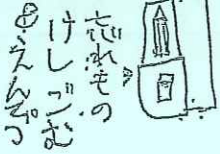 忘れもの
けしごむ
えんぴつ